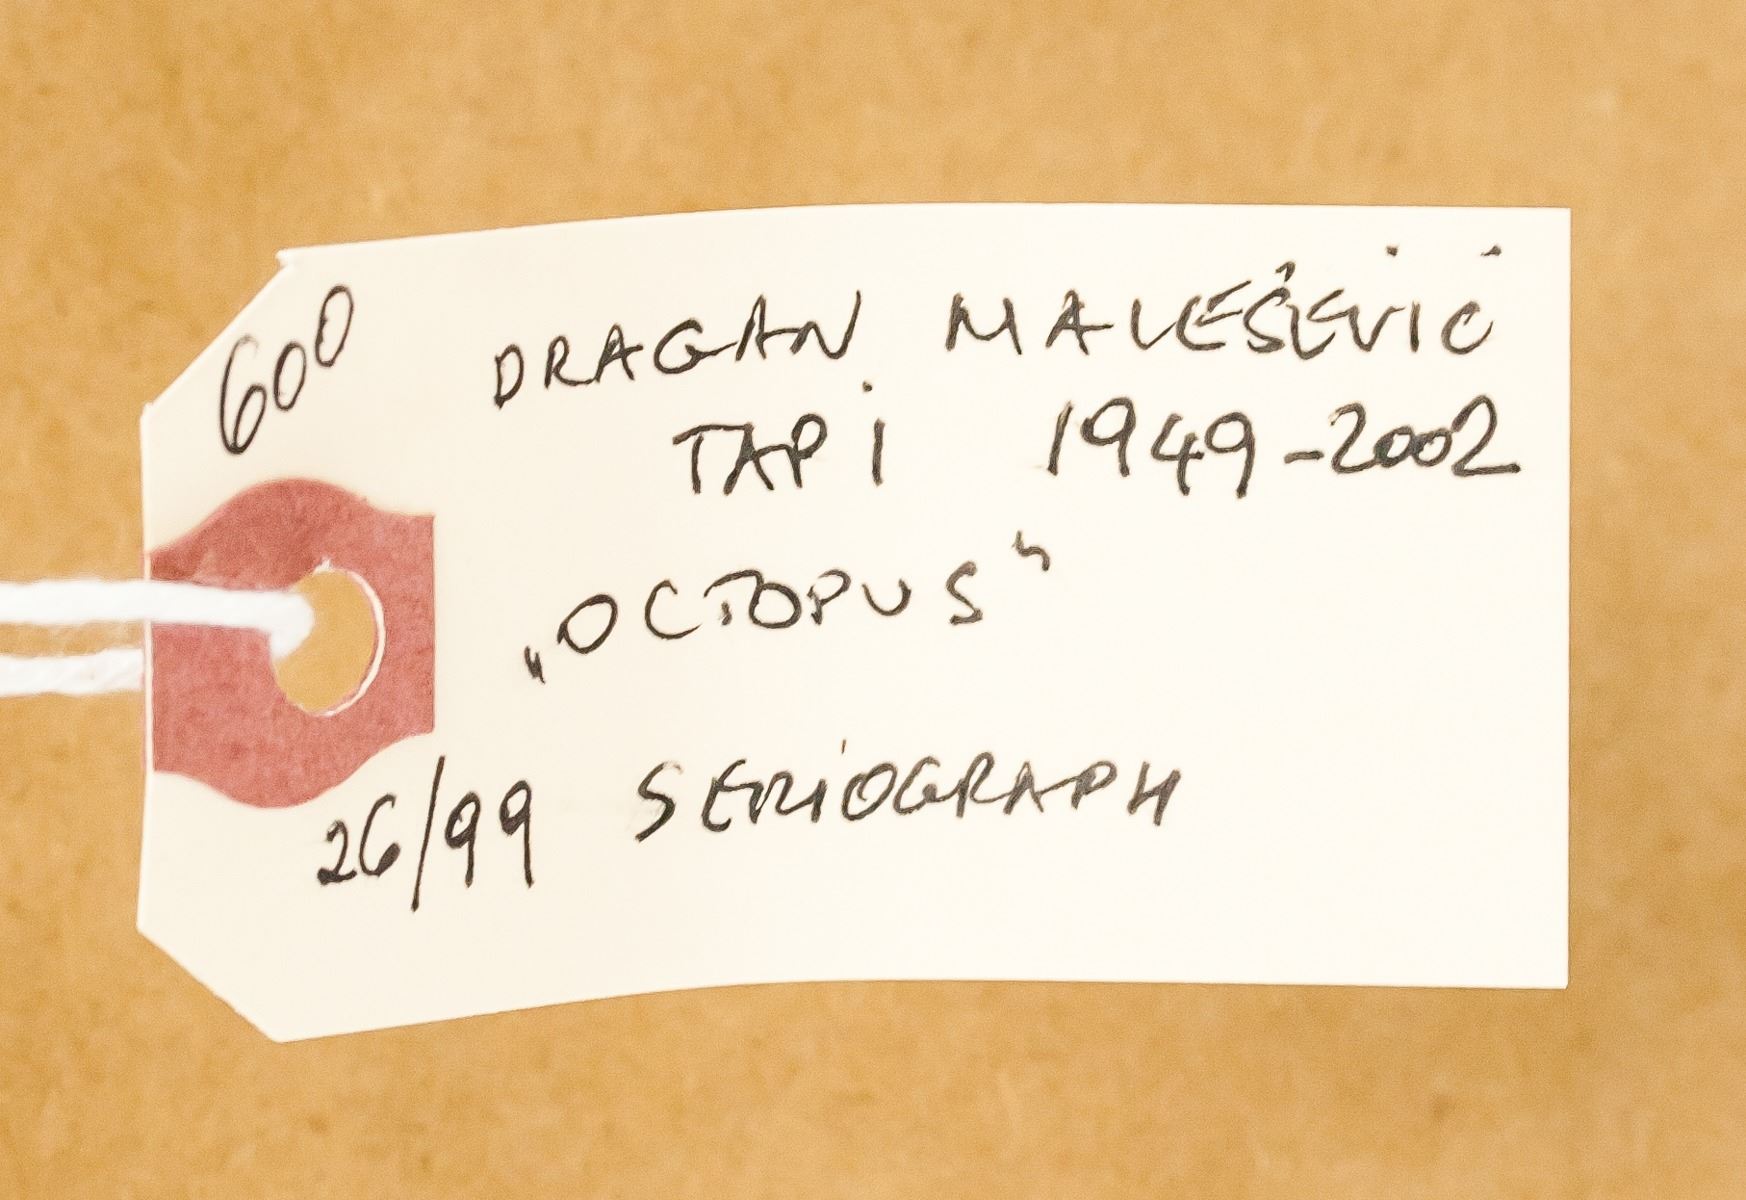 600
DRAGAN MALEŠEVIĆ
TAPI 1949-2002
„OCTOPUS"
26/99 SERIOGRAPH